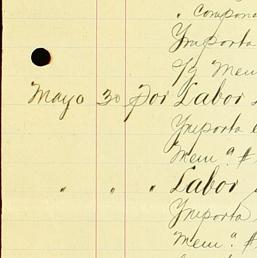 " Compona
Ymporta
S/ Mem
Mayo 30 Por Labor
Ymporta e
Mem.ª #
" " " Labor
Ymporta
Mem.ª #